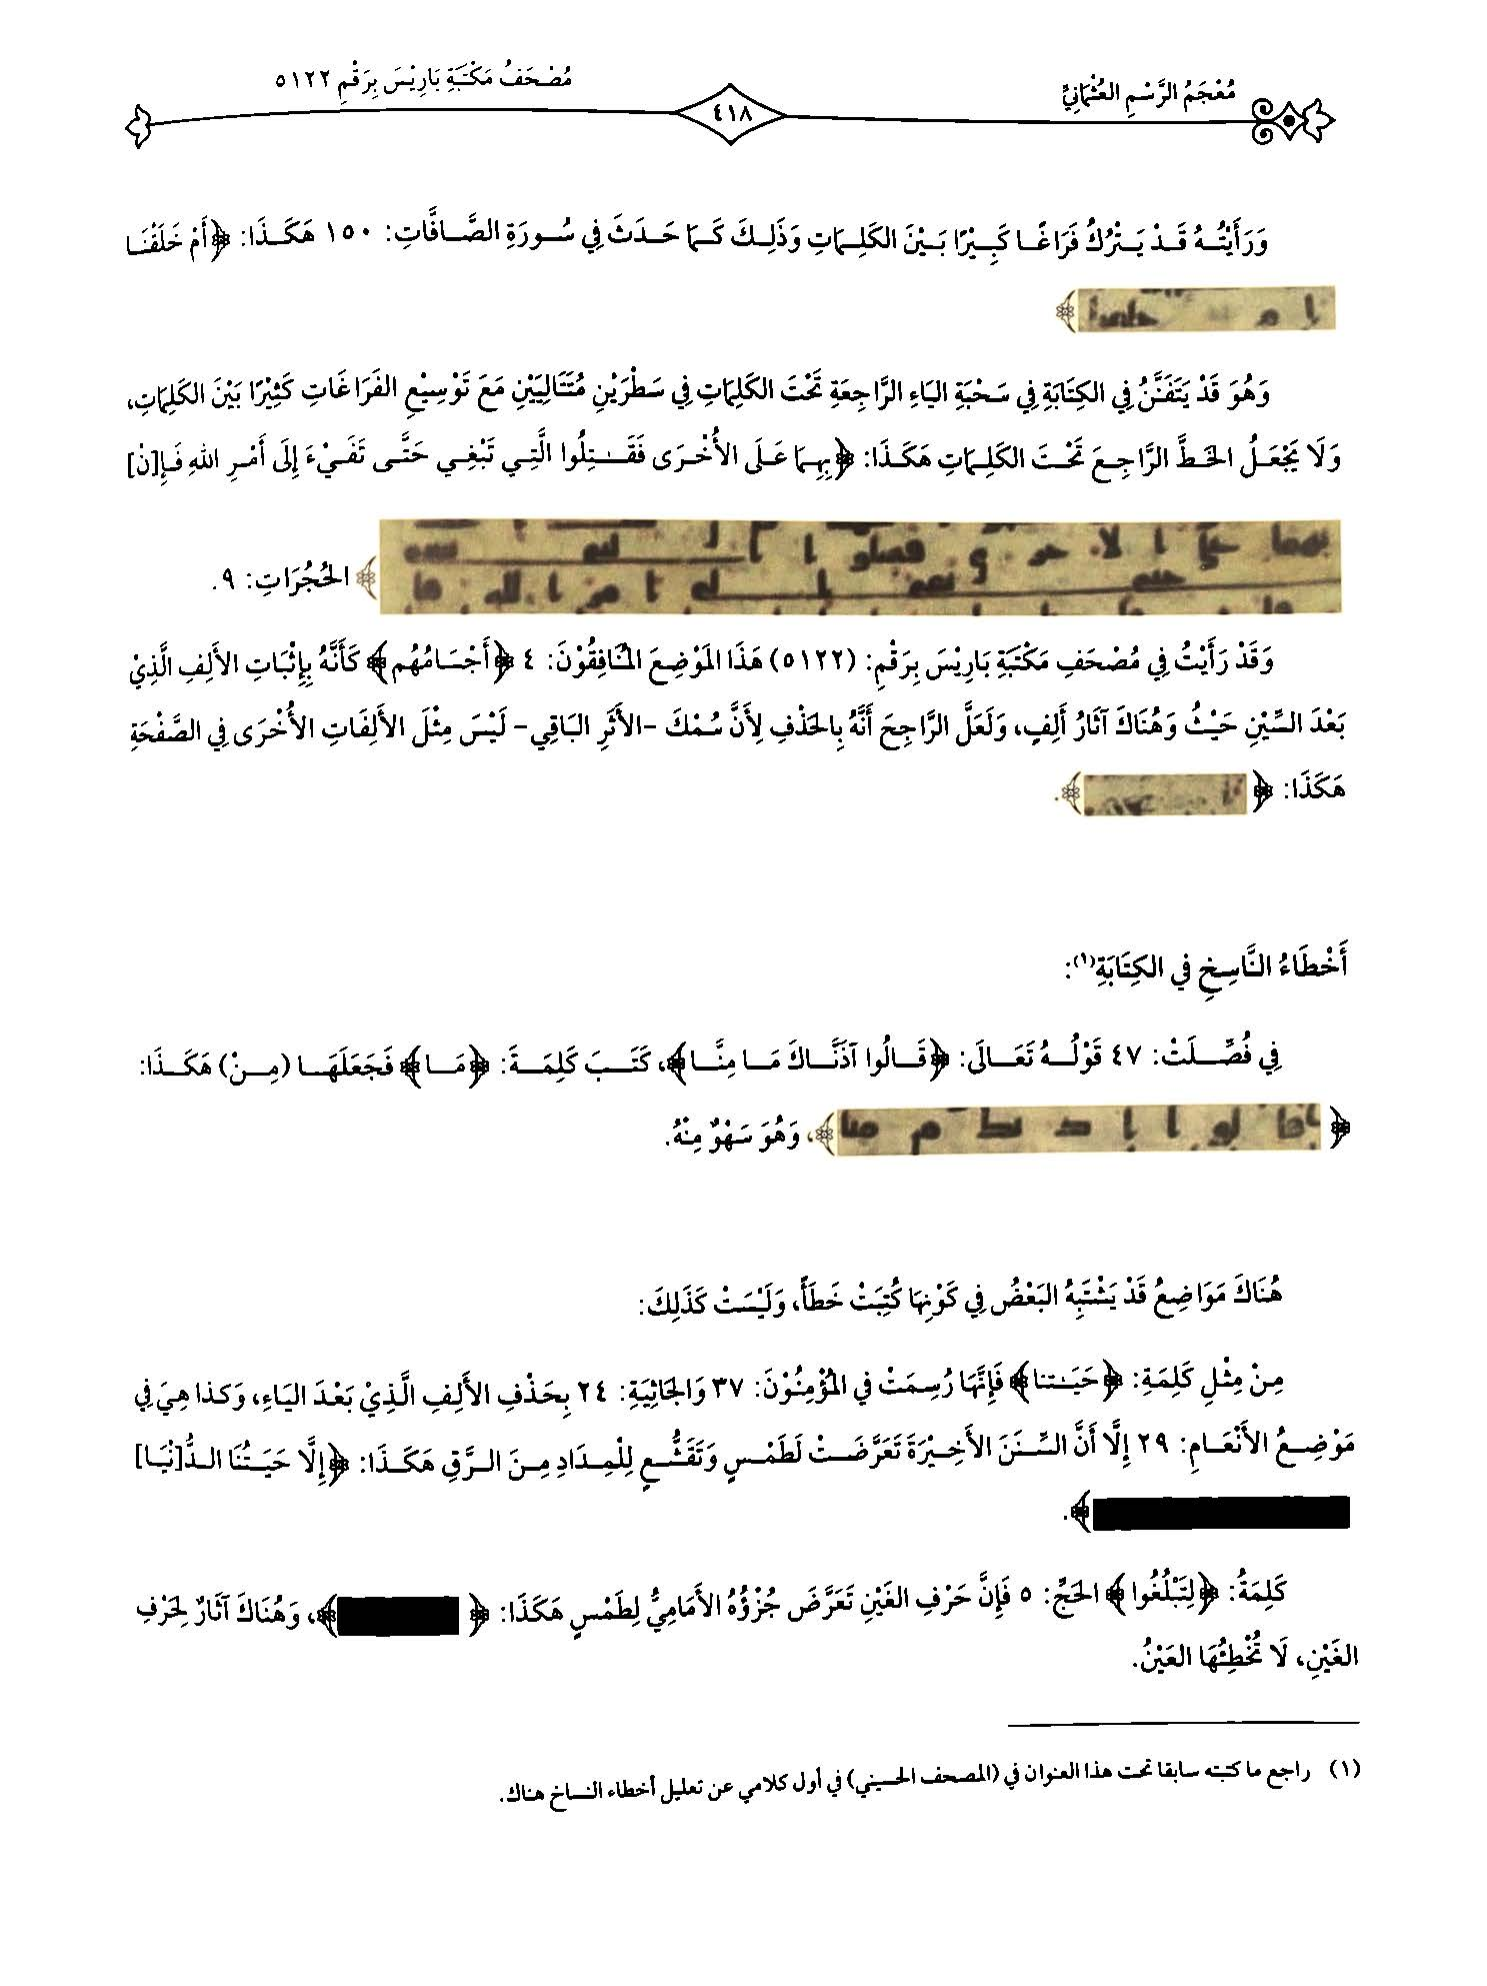 مُعْجَمُ الرَّسْمِ العُثْمَانِيِّ
٤١٨
مُصْحَفُ مَكْتَبَةِ بَارِيْسَ بِرَقْمِ ٥١٢٢
وَرَأَيْتُهُ قَدْ يَتْرُكُ فَرَاغًا كَبِيْرًا بَيْنَ الكَلِمَاتِ وَذَلِكَ كَمَا حَدَثَ فِي سُورَةِ الصَّافَّاتِ: ١٥٠ هَكَذَا: ﴿أَمْ خَلَقْنَا
﴾
وَهُوَ قَدْ يَتَفَنَّنُ فِي الكِتَابَةِ فِي سَحْبَةِ اليَاءِ الرَّاجِعَةِ تَحْتَ الكَلِمَاتِ فِي سَطْرَيْنِ مُتَتَالِيَيْنِ مَعَ تَوْسِيْعِ الفَرَاغَاتِ كَثِيْرًا بَيْنَ الكَلِمَاتِ،
وَلَا يَجْعَلُ الخَطَّ الرَّاجِعَ تَحْتَ الكَلِمَاتِ هَكَذَا: ﴿بِهِمَا عَلَى الأُخْرَى فَقَٰتِلُوا الَّتِي تَبْغِي حَتَّى تَفِيْءَ إِلَى أَمْرِ اللهِ فَإِ[نْ]
﴾ الحُجُرَاتِ: ٩.
وَقَدْ رَأَيْتُ فِي مُصْحَفِ مَكْتَبَةِ بَارِيْسَ بِرَقْمِ: (٥١٢٢) هَذَا المَوْضِعَ المُنَافِقُوْنَ: ٤ ﴿أَجْسَامُهُم﴾ كَأَنَّهُ بِإِثْبَاتِ الأَلِفِ الَّذِيْ
بَعْدَ السِّيْنِ حَيْثُ وَهُنَاكَ آثَارُ أَلِفٍ، وَلَعَلَّ الرَّاجِحَ أَنَّهُ بِالحَذْفِ لِأَنَّ سُمْكَ -الأَثَرِ البَاقِي- لَيْسَ مِثْلَ الأَلِفَاتِ الأُخْرَى فِي الصَّفْحَةِ
هَكَذَا: ﴿ ﴾.
أَخْطَاءُ النَّاسِخِ فِي الكِتَابَةِ(١):
فِي فُصِّلَتْ: ٤٧ قَوْلُهُ تَعَالَى: ﴿قَالُوا آذَنَّاكَ مَا مِنَّا﴾، كَتَبَ كَلِمَةَ: ﴿مَا﴾ فَجَعَلَهَا (مِنْ) هَكَذَا:
﴿ ﴾، وَهُوَ سَهْوٌ مِنْهُ.
هُنَاكَ مَوَاضِعُ قَدْ يَشْتَبِهُ البَعْضُ فِي كَوْنِهَا كُتِبَتْ خَطَأً، وَلَيْسَتْ كَذَلِكَ:
مِنْ مِثْلِ كَلِمَةِ: ﴿حَيَٰتنا﴾ فَإِنَّهَا رُسِمَتْ فِي المُؤْمِنُوْنَ: ٣٧ وَالجَاثِيَةِ: ٢٤ بِحَذْفِ الأَلِفِ الَّذِيْ بَعْدَ اليَاءِ، وَكذا هِيَ فِي
مَوْضِعُ الأَنْعَامِ: ٢٩ إِلَّا أَنَّ السِّنَنَ الأَخِيْرَةَ تَعَرَّضَتْ لَطَمْسٍ وَتَقَشُّعٍ لِلْمِدَادِ مِنَ الرَّقِ هَكَذَا: ﴿إِلَّا حَيَتُنَا الدُّ[نْيَا]
﴾.
كَلِمَةُ: ﴿لِتَبْلُغُوا﴾ الحَجِّ: ٥ فَإِنَّ حَرْفِ الغَيْنِ تَعَرَّضَ جُزْؤُهُ الأَمَامِيُّ لِطَمْسٍ هَكَذَا: ﴿ ﴾، وَهُنَاكَ آثَارٌ لِحَرْفِ
الغَيْنِ، لَا تُخْطِئُهَا العَيْنُ.
(١) راجع ما كتبته سابقا تحت هذا العنوان في (المصحف الحسيني) في أول كلامي عن تعليل أخطاء النساخ هناك.